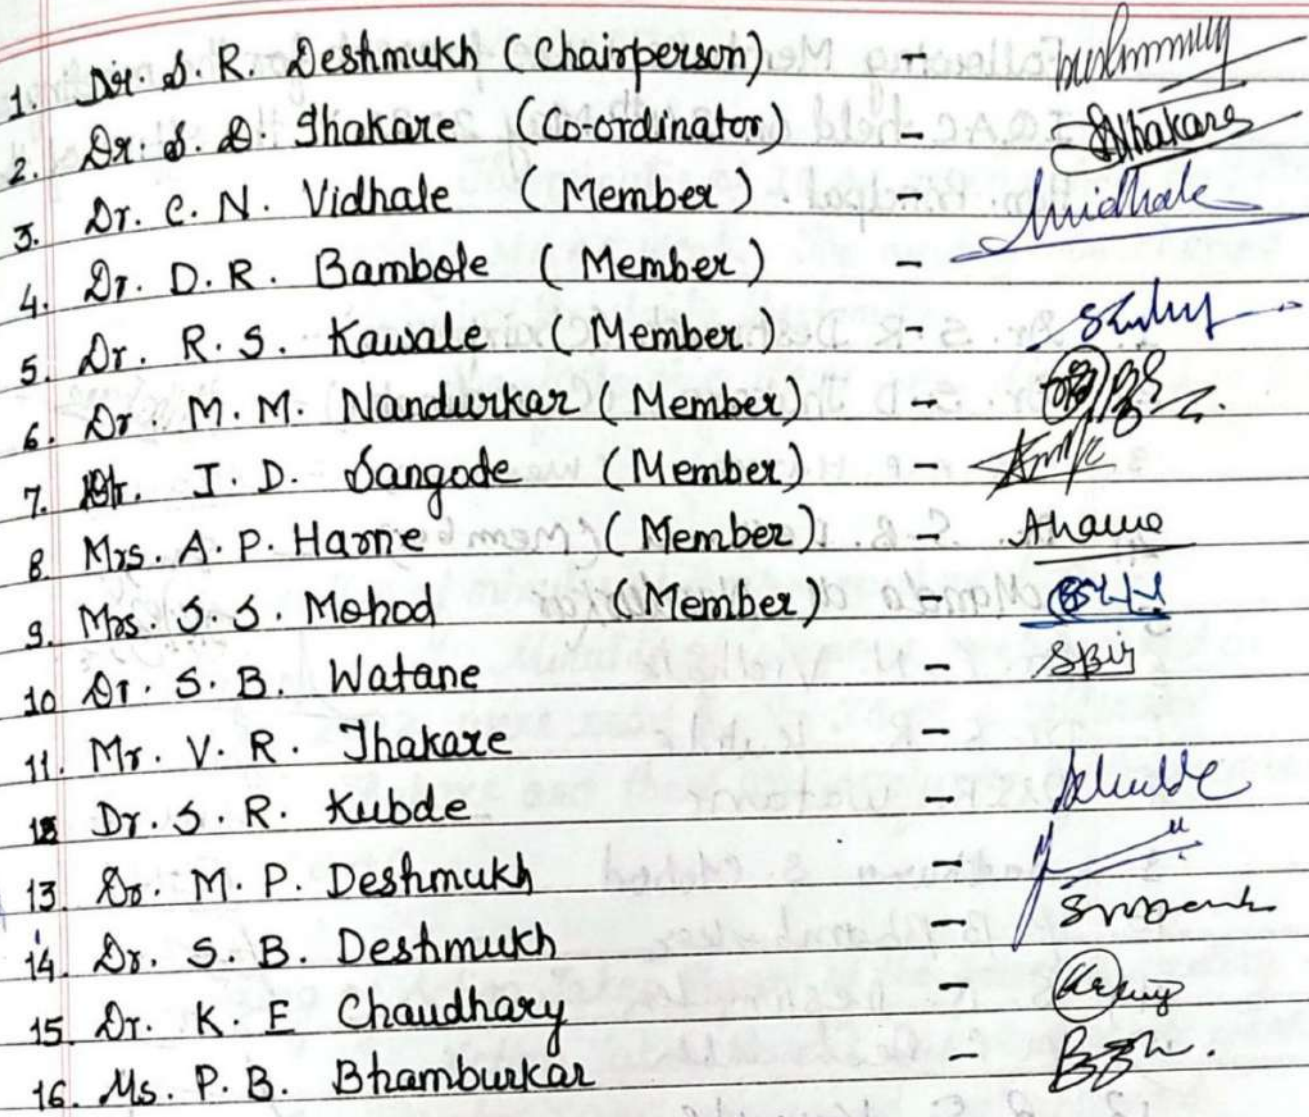 1. Dr. S. R. Deshmukh (Chairperson) -
2. Dr. S. D. Thakare (Co-ordinator) - SDThakare
3. Dr. C. N. Vidhale (Member) - Vidhale
4. Dr. D. R. Bambole (Member) -
5. Dr. R. S. Kawale (Member) -
6. Dr. M. M. Nandurkar (Member) -
7. Dr. J. D. Sangode (Member) -
8. Mrs. A. P. Harne (Member) - Aharne
9. Mrs. S. S. Mohod (Member) -
10 Dr. S. B. Watane -
11. Mr. V. R. Thakare -
12 Dr. S. R. Kubde -
13. Dr. M. P. Deshmukh -
14. Dr. S. B. Deshmukh -
15. Dr. K. E Chaudhary -
16. Ms. P. B. Bhamburkar -